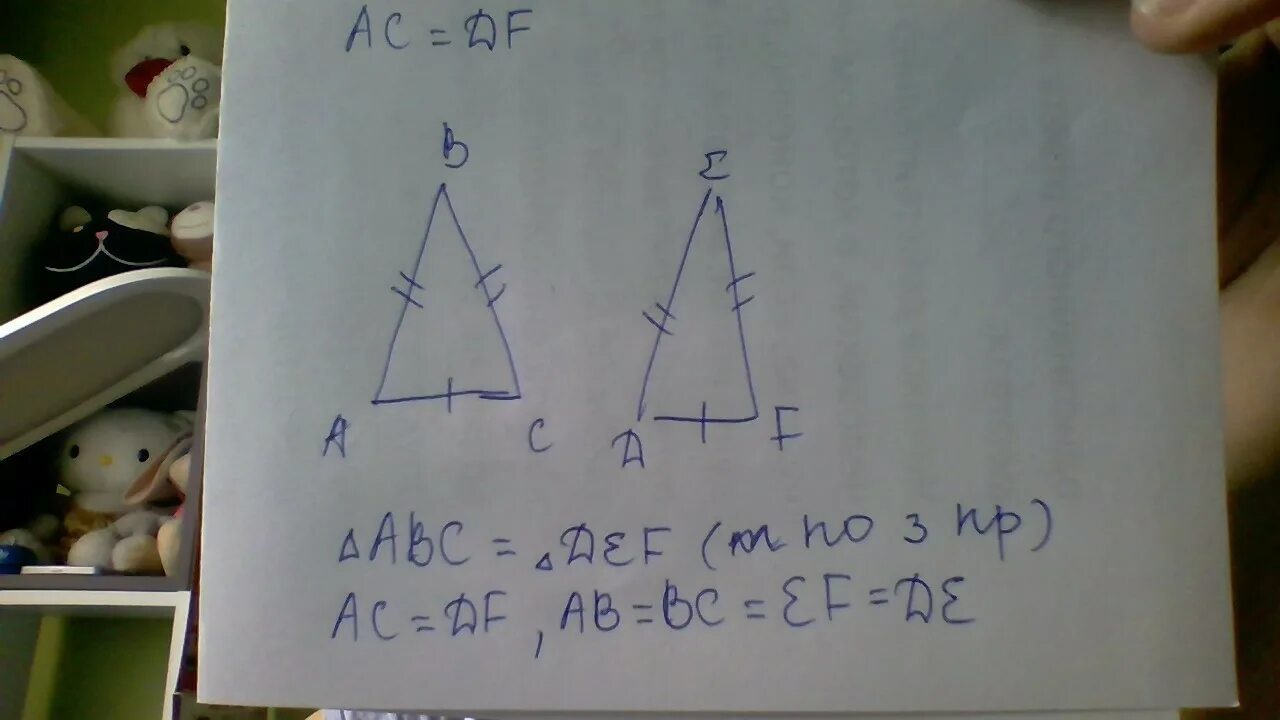 AC = DF
B
E
A
C
D
F
△ABC = △DEF (т по 3 пр)
AC = DF, AB = BC = EF = DE